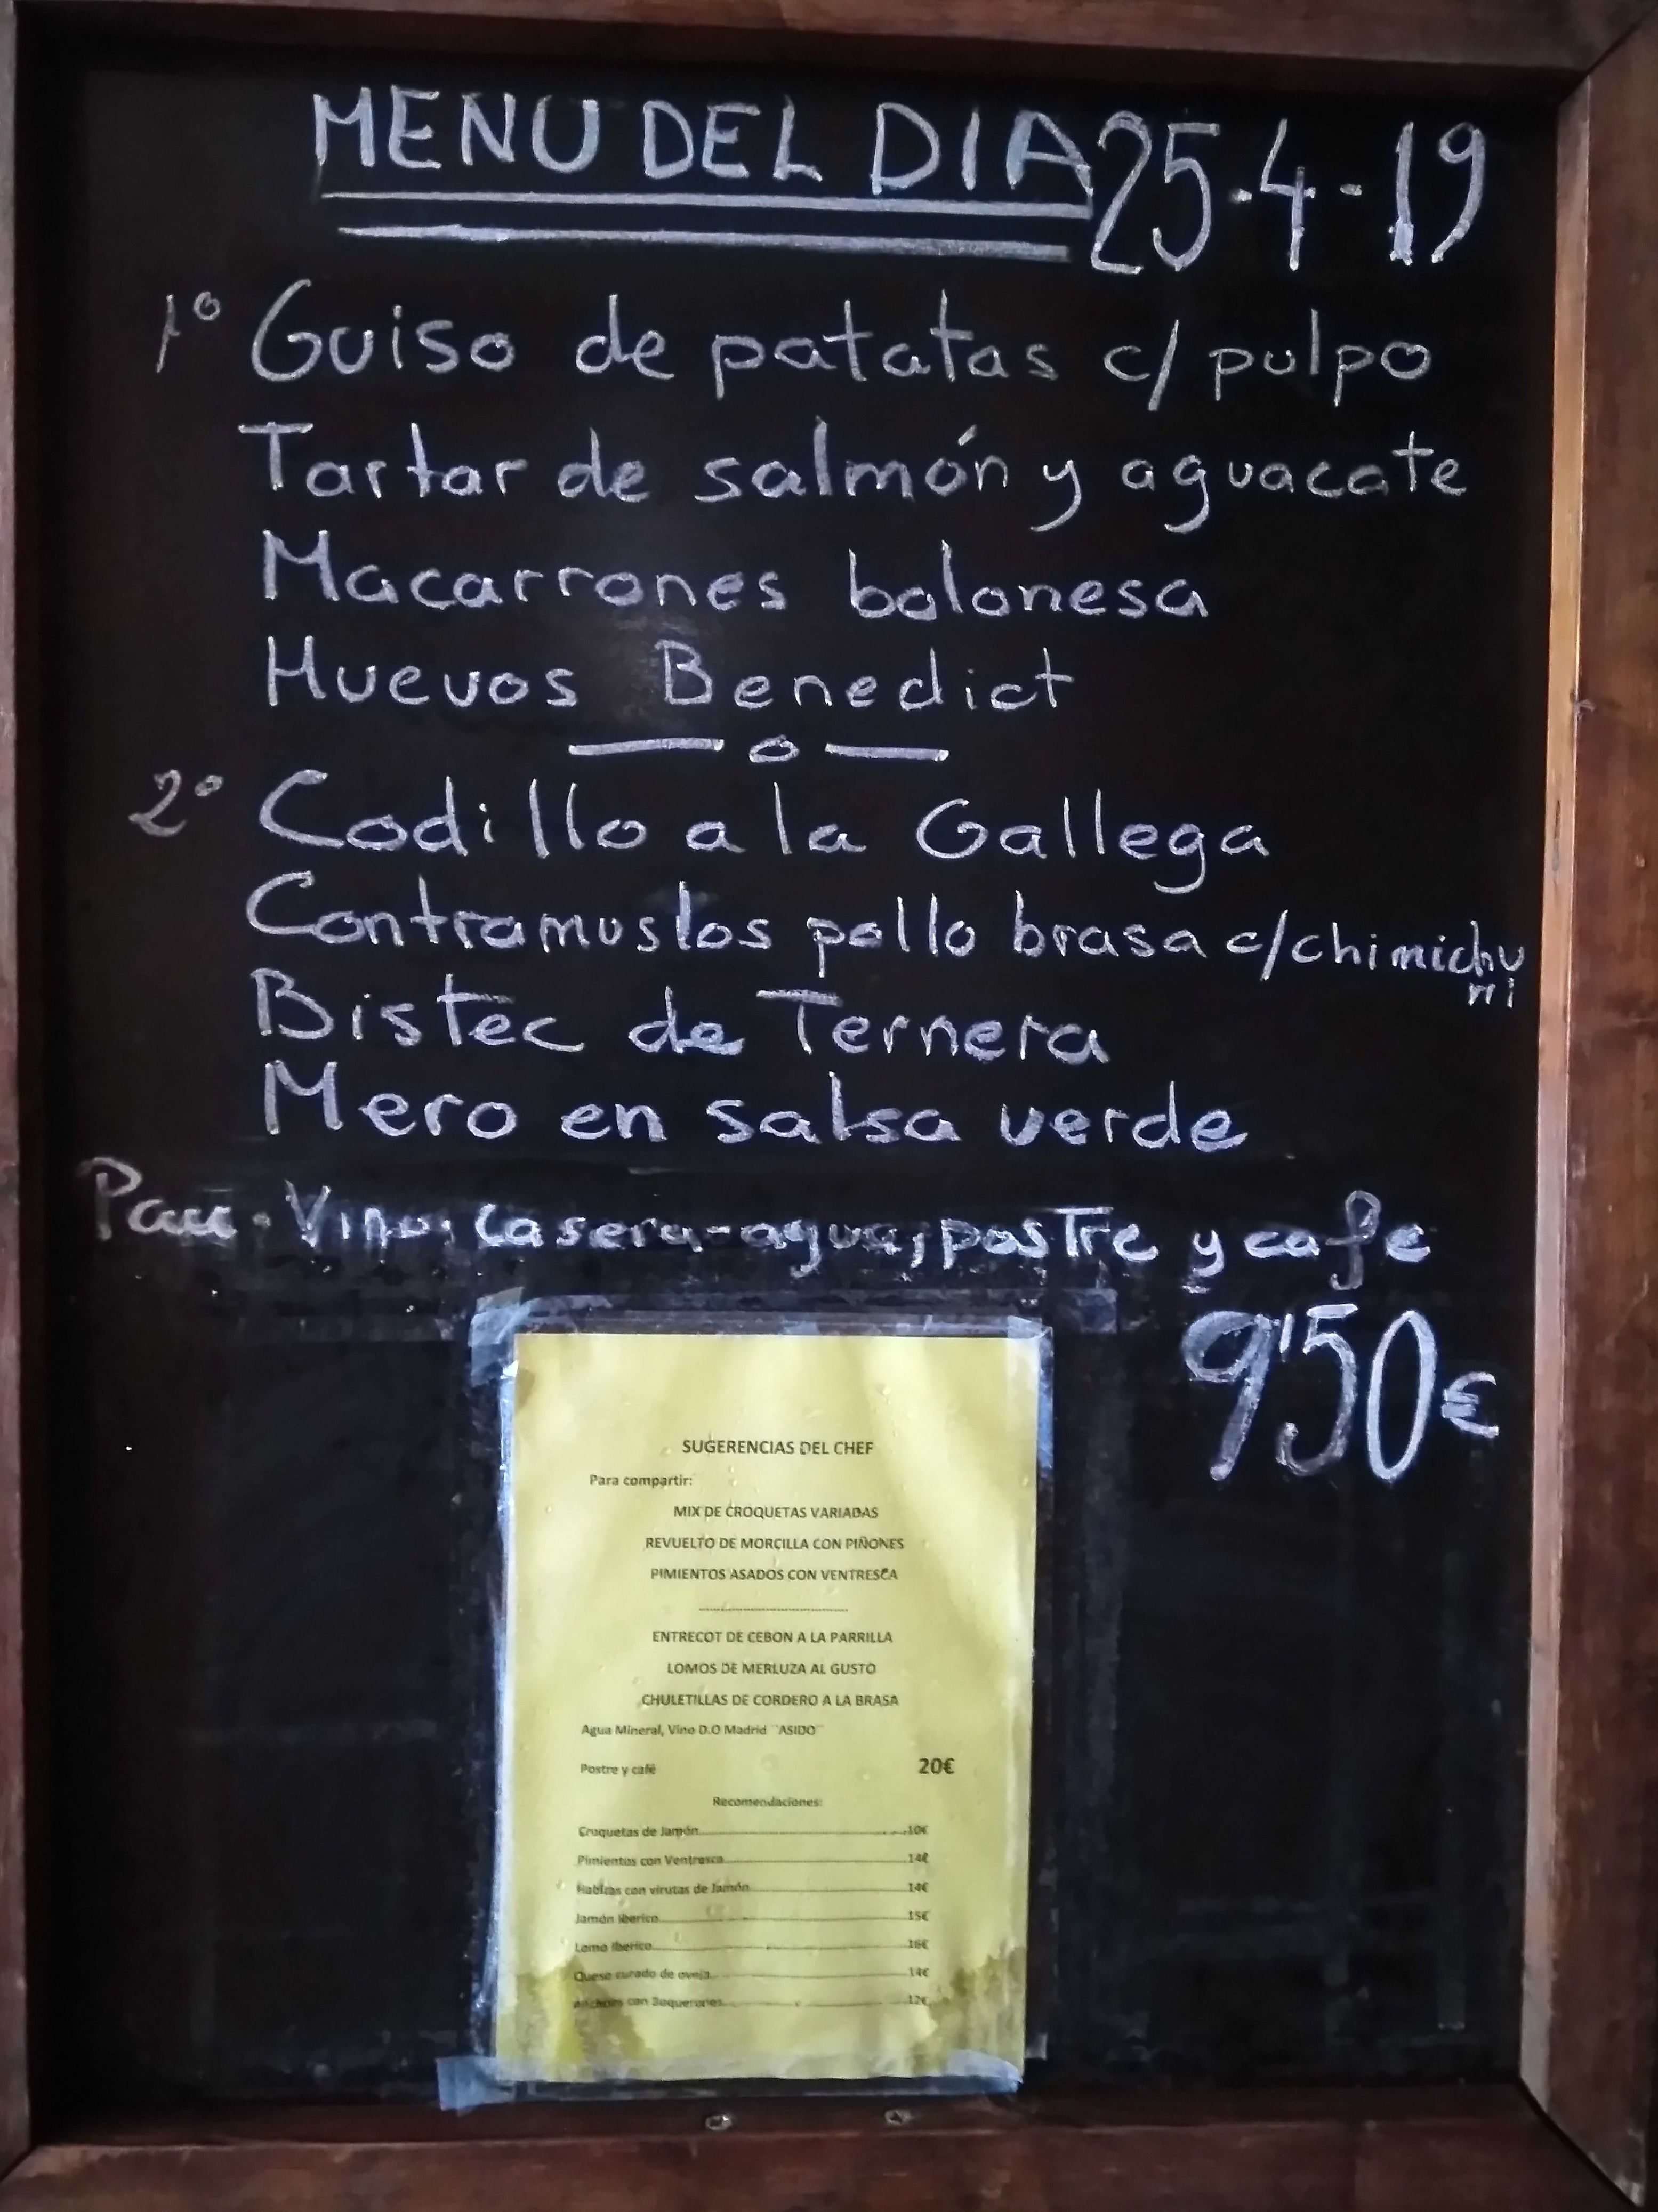 MENU DEL DIA 25-4-19
1º Guiso de patatas c/ pulpo
Tartar de salmón y aguacate
Macarrones bolonesa
Huevos Benedict
— o —
2º Codillo a la Gallega
Contramuslos pollo brasa c/chimichu
rri
Bistec de Ternera
Mero en salsa verde
Pan. Vino, casera-agua, postre y cafe
9'50€
SUGERENCIAS DEL CHEF
Para compartir:
MIX DE CROQUETAS VARIADAS
REVUELTO DE MORCILLA CON PIÑONES
PIMIENTOS ASADOS CON VENTRESCA
ENTRECOT DE CEBON A LA PARRILLA
LOMOS DE MERLUZA AL GUSTO
CHULETILLAS DE CORDERO A LA BRASA
Agua Mineral, Vino D.O Madrid ¨ASIDO¨
Postre y café 20€
Recomendaciones:
Croquetas de Jamón 10€
Pimientos con Ventresca 14€
Habitas con virutas de Jamón 14€
Jamón Iberico 15€
Lomo Iberico 16€
Queso curado de oveja 14€
con Boquerones 12€